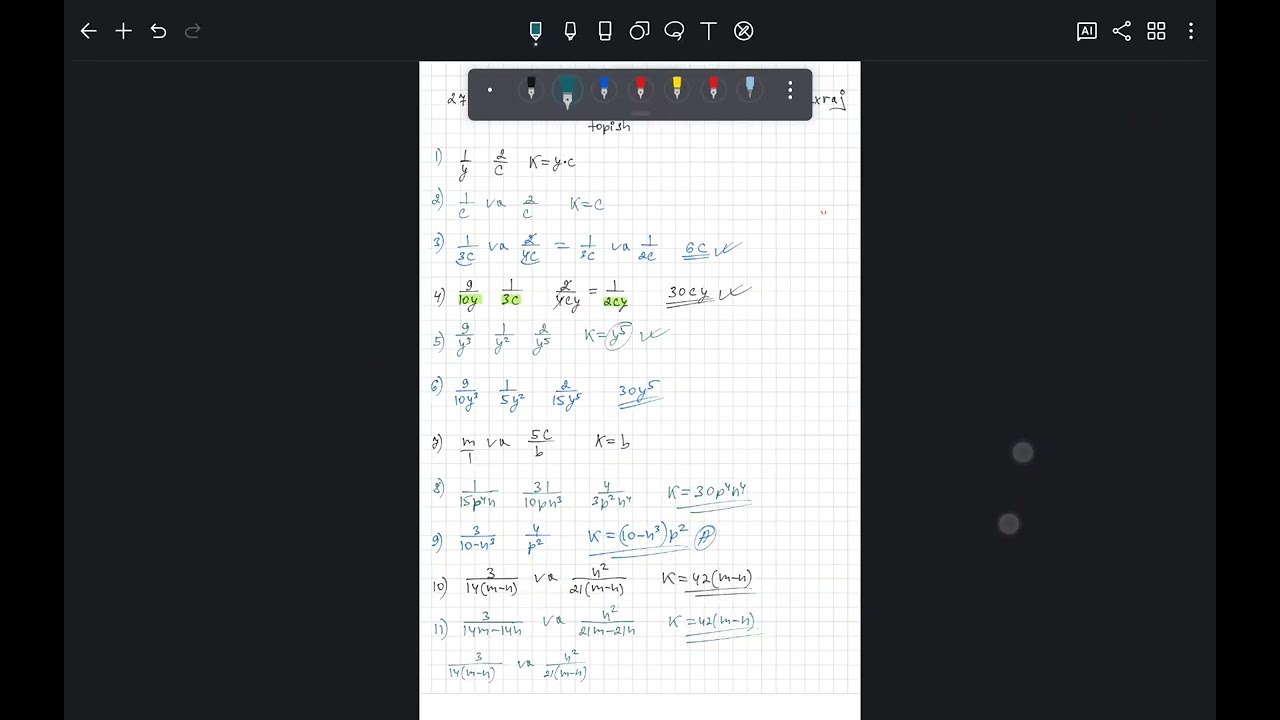 AI T
27 xraj
topish
1) 1/y 2/c K=y·c
2) 1/c va 2/c K=c
3) 1/3c va 2/4c = 1/3c va 1/2c 6c
4) 9/10y 1/3c 2/4cy = 1/2cy 30cy
5) 9/y³ 1/y² 2/y⁵ K=y⁵
6) 9/10y³ 1/5y² 2/15y⁵ 30y⁵
7) m/1 va 5c/b K=b
8) 1/15p⁴n 31/10pn³ 4/3p²n⁴ K=30p⁴n⁴
9) 3/10-n³ 4/p² K=(10-n³)p² A
10) 3/14(m-n) va n²/21(m-n) K=42(m-n)
11) 3/14m-14n va n²/21m-21n K=42(m-n)
3/14(m-n) va n²/21(m-n)